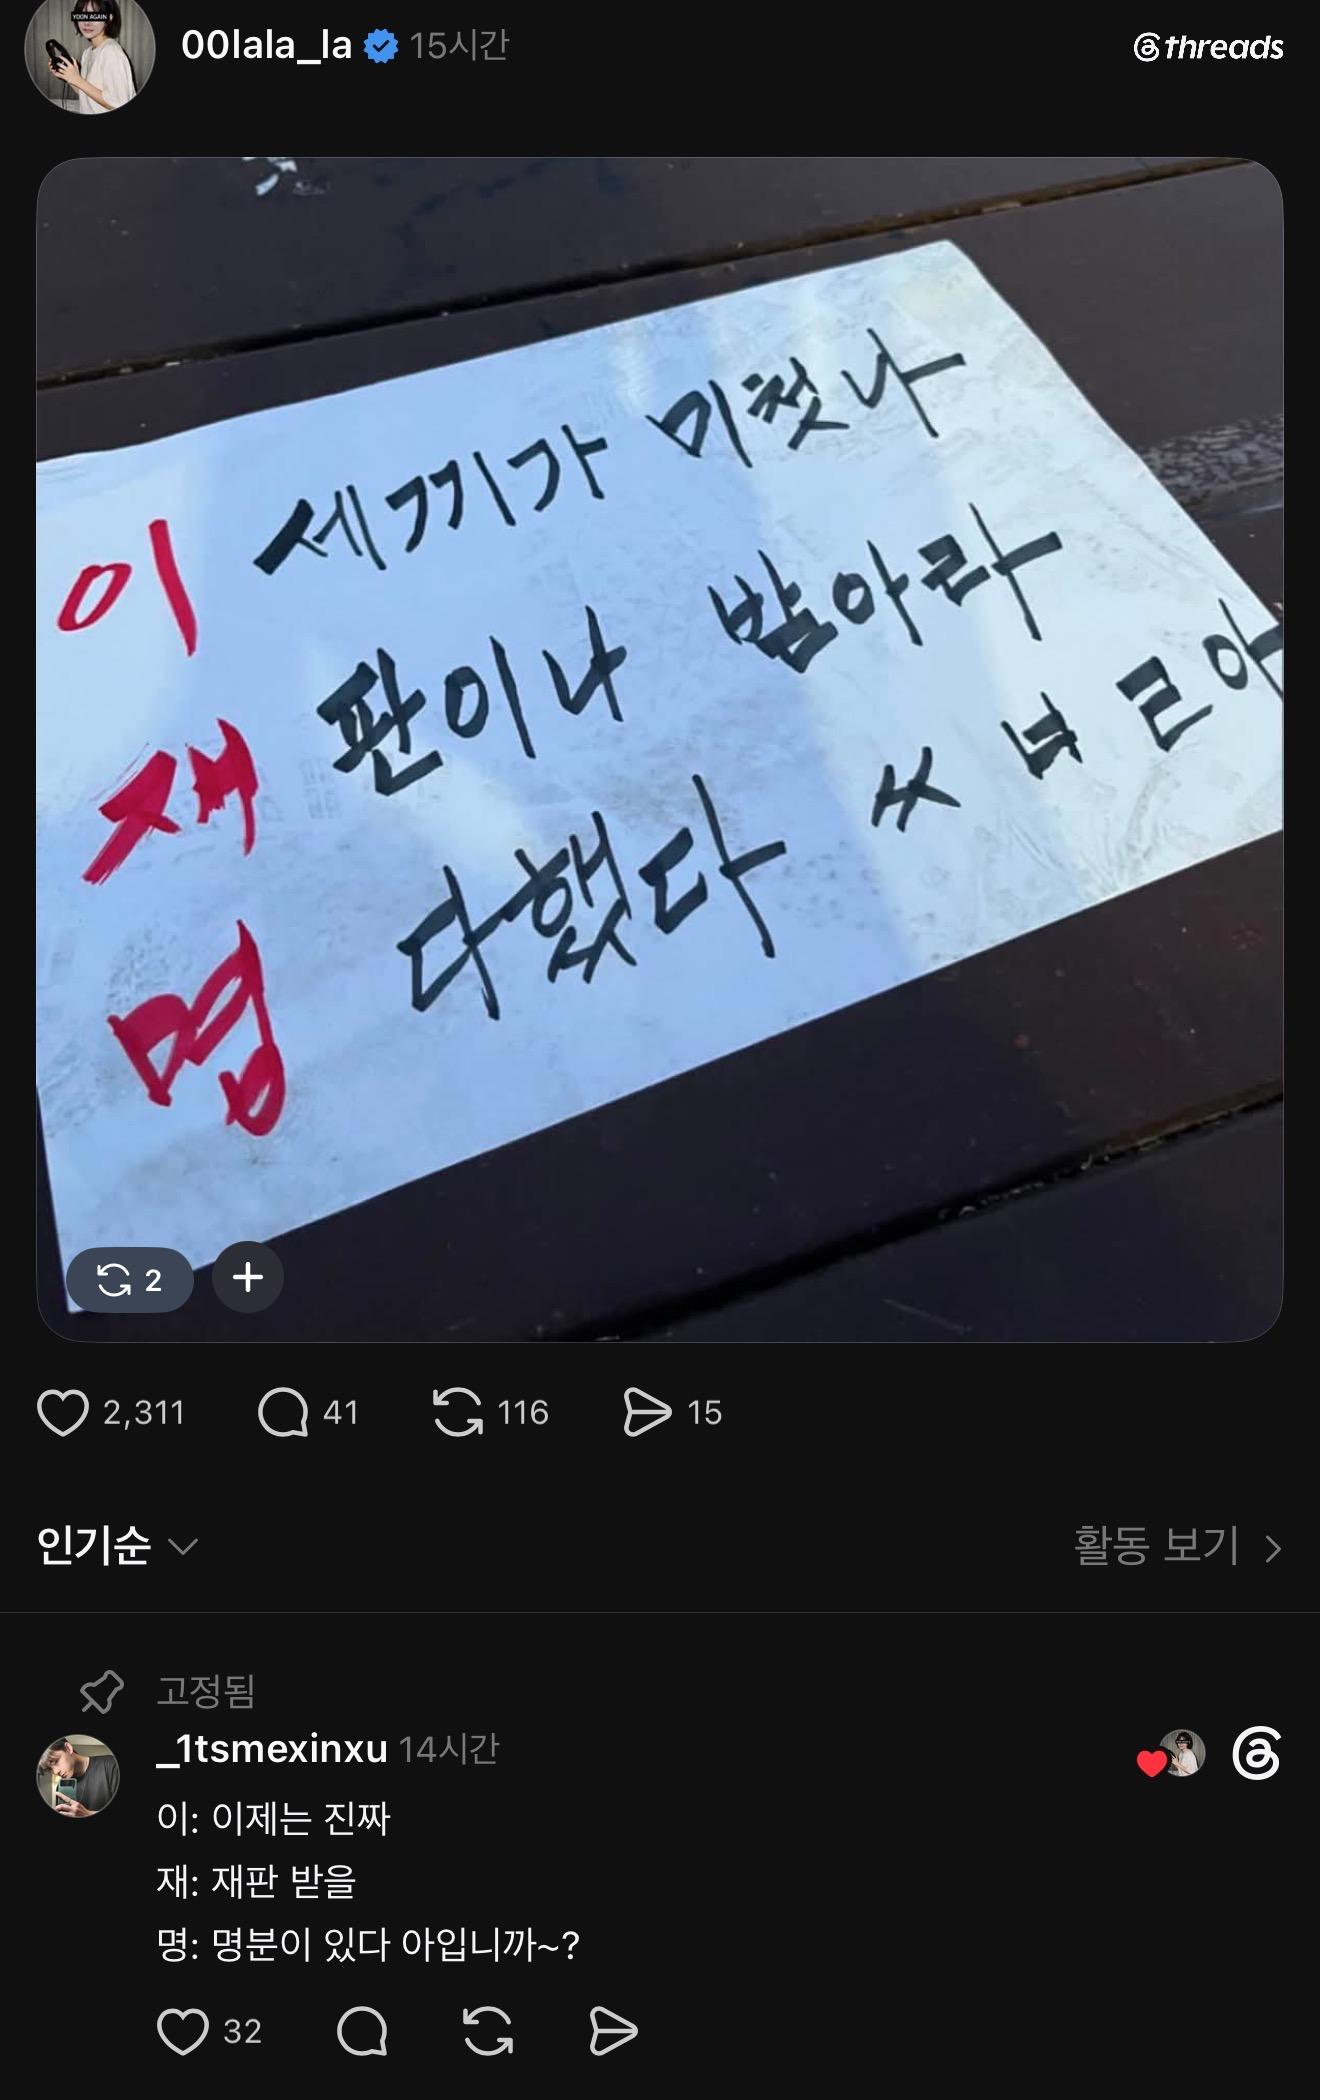 YOON AGAIN
00lala_la 15시간
threads
이 세끼가 미첫나
재 판이나 받아라
명 다했다 ㅆ 녀 ㄹ아
2
2,311 41 116 15
인기순 활동 보기
고정됨
_1tsmexinxu 14시간
이: 이제는 진짜
재: 재판 받을
명: 명분이 있다 아입니까~?
32